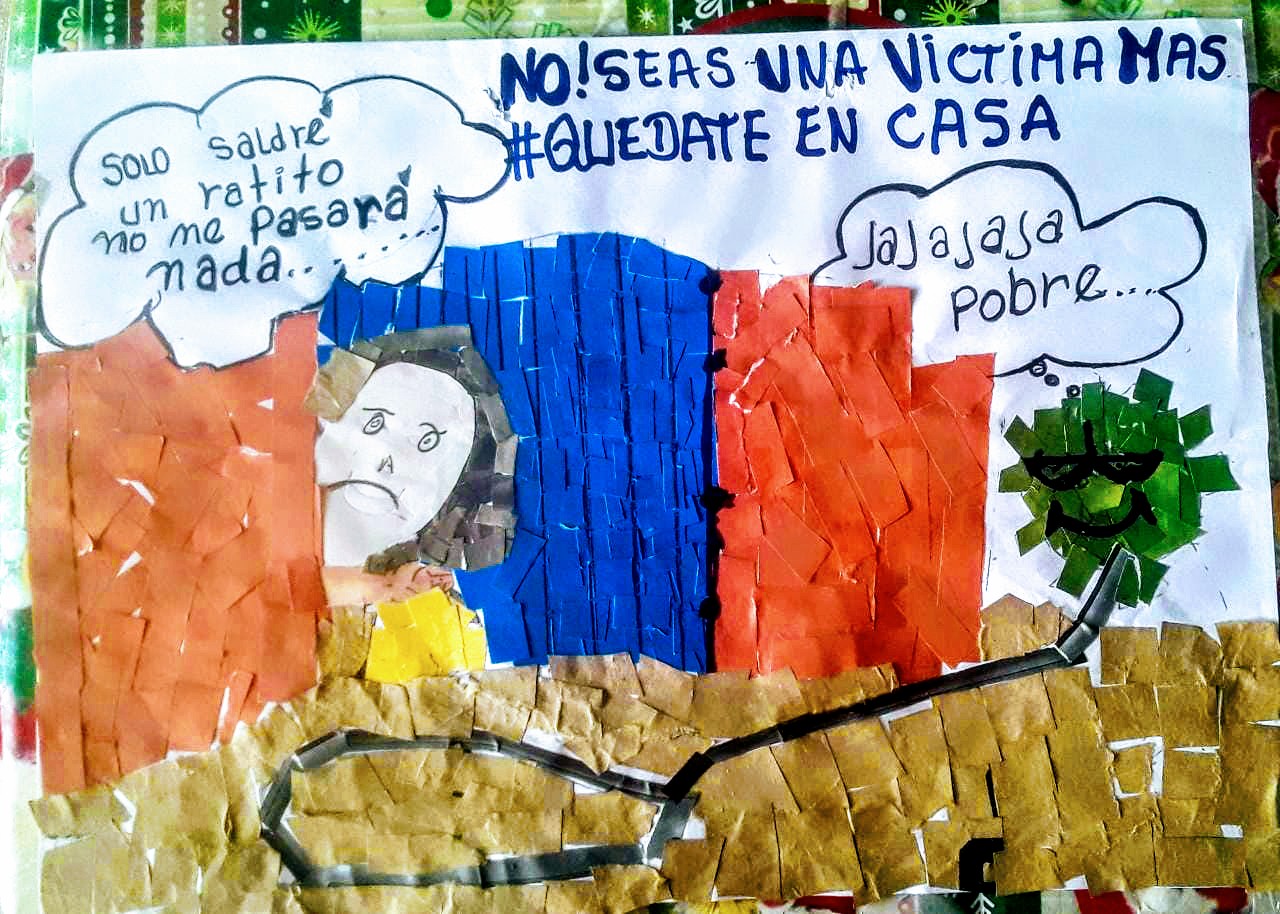 NO!SEAS UNA VíCTIMA MAS
#QUEDATE EN CASA
SOLO saldré
un ratito
no me Pasará
nada...........
JaJaJaJa
pobre....